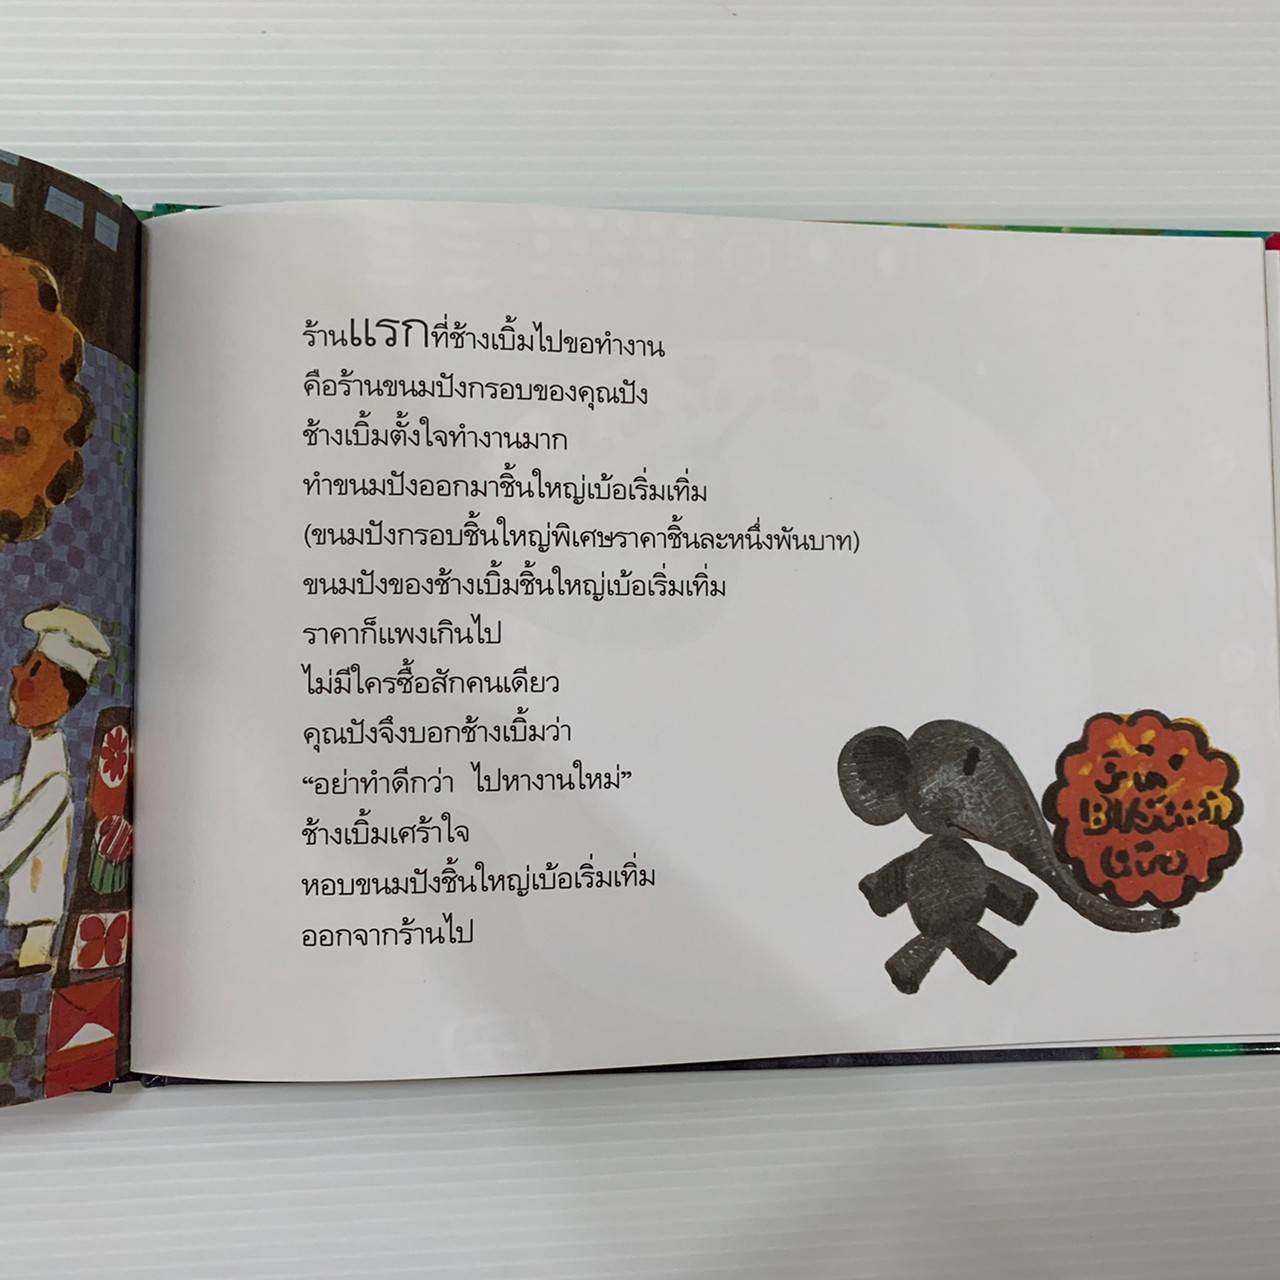 ร้านแรกที่ช้างเบิ้มไปขอทำงาน
คือร้านขนมปังกรอบของคุณปัง
ช้างเบิ้มตั้งใจทำงานมาก
ทำขนมปังออกมาชิ้นใหญ่เบ้อเริ่มเทิ่ม
(ขนมปังกรอบชิ้นใหญ่พิเศษราคาชิ้นละหนึ่งพันบาท)
ขนมปังของช้างเบิ้มชิ้นใหญ่เบ้อเริ่มเทิ่ม
ราคาก็แพงเกินไป
ไม่มีใครซื้อสักคนเดียว
คุณปังจึงบอกช้างเบิ้มว่า
“อย่าทำดีกว่า ไปหางานใหม่”
ช้างเบิ้มเศร้าใจ
หอบขนมปังชิ้นใหญ่เบ้อเริ่มเทิ่ม
ออกจากร้านไป